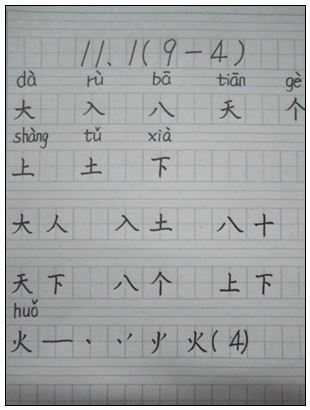 11.1(9-4)
dà rù bā tiān gè
大 入 八 天 个
shàng tǔ xià
上 土 下
大人 入土 八十
天下 八个 上下
huǒ
火 一 丶 丷 少 火(4)